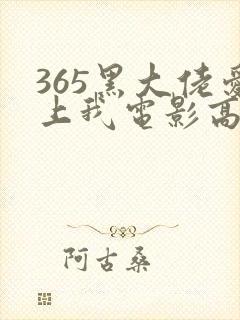 365黑大佬爱
上我电影高
阿古桑